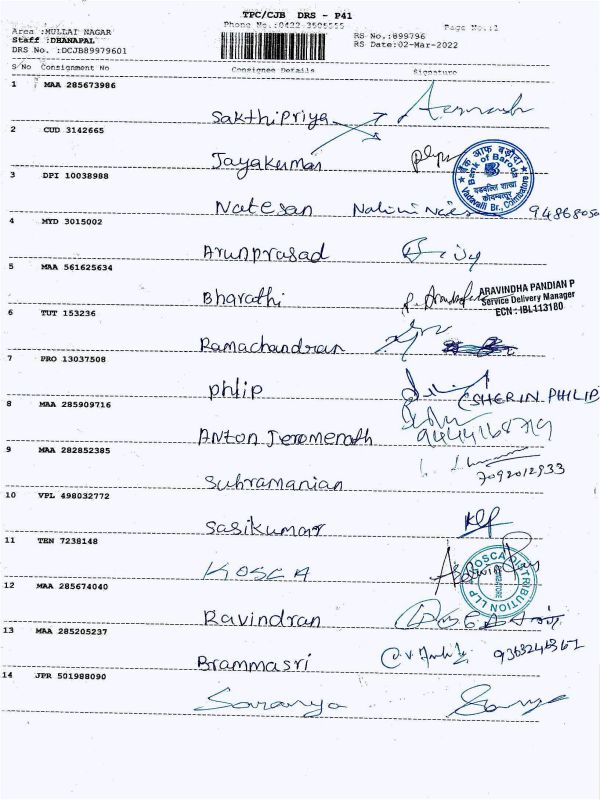 TPC/CJB DRS - P41
Area :MULLAI NAGAR Phone No.:0422-3505555 Page No.:1
Staff :DHANAPAL RS No.:899796
DRS No. :DCJB89979601 RS Date:02-Mar-2022
S/No Consignment No Consignee Details Signature
1 MAA 285673986
Sakthipriya
2 CUD 3142665
Jayakumar
3 DPI 10038988
बैंक ऑफ़ बड़ौदा
Bank of Baroda
Vadavalli Br., Coimbatore
Natesan Nalini 9486805
4 MYD 3015002
Arunprasad
5 MAA 561625634
Bharathi
ARAVINDHA PANDIAN P
Service Delivery Manager
ECN : IBL113180
6 TUT 153236
Ramachandran
7 PRO 13037508
Phlip (SHERIN PHILIP)
8 MAA 285909716
Anton Jeromenath
9 MAA 282852385
7092012933
Subramanian
10 VPL 498032772
Sasikumar
11 TEN 7238148
KOSCA
KOSCA DISTRIBUTION LLP
12 MAA 285674040
Ravindran
13 MAA 285205237
Brammasri
14 JPR 501988090
Saranya